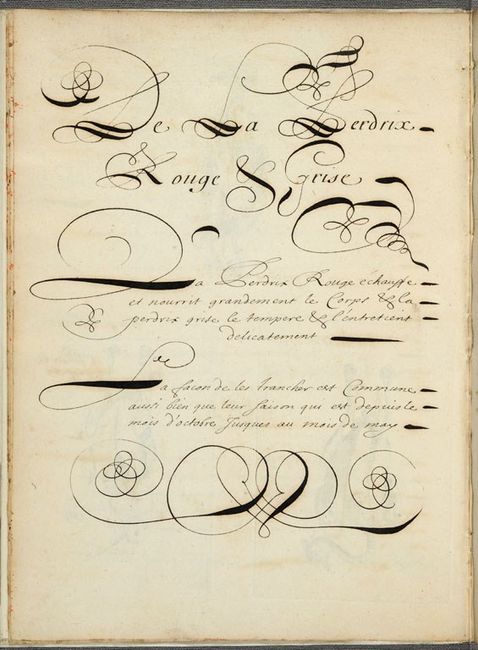 De La Perdrix
Rouge & Grise
La Perdrix Rouge échauffe
et nourrit grandement le Corps & la
perdrix grise le tempere & l'entretient
delicatement
La façon de les trancher est Commune
aussi bien que leur saison qui est depuis le
mois d'octobre Jusques au mois de may